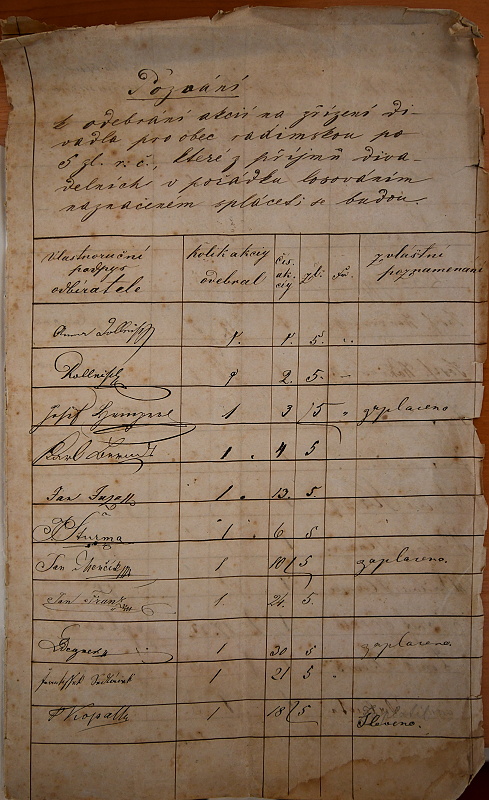 Pozvání
k odebrání akcií na zřízení di-
vadla pro obec radimskou po
5 zl. r. č., které z příjmů diva-
delních v pořádku losováním
naznačeném spláceti se budou.
Vlastnoruční podpys odbíratele kolik akciý odebral čís. akciý zl. kr. zvláštní poznamenání
Anna 1. 1. 5.
1 2. 5. —
Josef 1 3 5 " zaplaceno
Karl 1. 4 5
Jan 1. 13. 5.
Šturma 1. 6 5
Jan 1 10 5 zaplaceno.
Jan 1. 24. 5.
Wegner 1 30 5 zaplaceno.
František Sedláček 1 21 5
Kopatt 1 18 5 Sleveno.